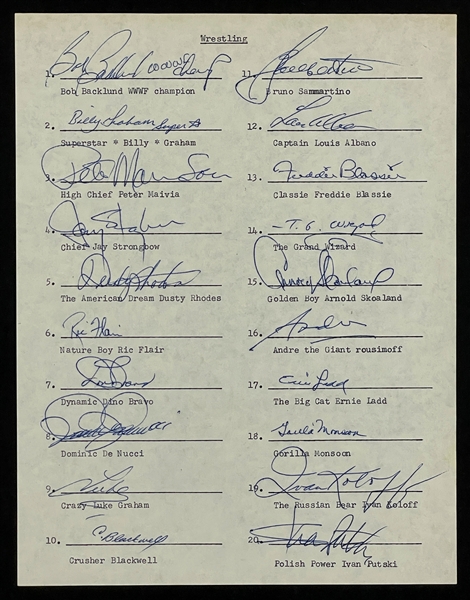 Wrestling
1. Bob Backlund WWWF champ
Bob Backlund WWWF champion
2. Billy Graham Super *
Superstar * Billy * Graham
3.
High Chief Peter Maivia
4. Jay
Chief Jay Strongbow
5. Dusty Rhodes
The American Dream Dusty Rhodes
6. Ric Flair
Nature Boy Ric Flair
7.
Dynamic Dino Bravo
8.
Dominic De Nucci
9. Luke
Crazy Luke Graham
10. C Blackwell
Crusher Blackwell
11.
Bruno Sammartino
12. Lou Albano
Captain Louis Albano
13. Freddie Blassie
Classie Freddie Blassie
14. - T. G. Wizard
The Grand Wizard
15. Arnold Skoaland
Golden Boy Arnold Skoaland
16. Andre
Andre the Giant rousimoff
17. Ernie Ladd
The Big Cat Ernie Ladd
18. Gorilla Monsoon
Gorilla Monsoon
19. Ivan Koloff
The Russian Bear Ivan Koloff
20. Ivan Putski
Polish Power Ivan Putski